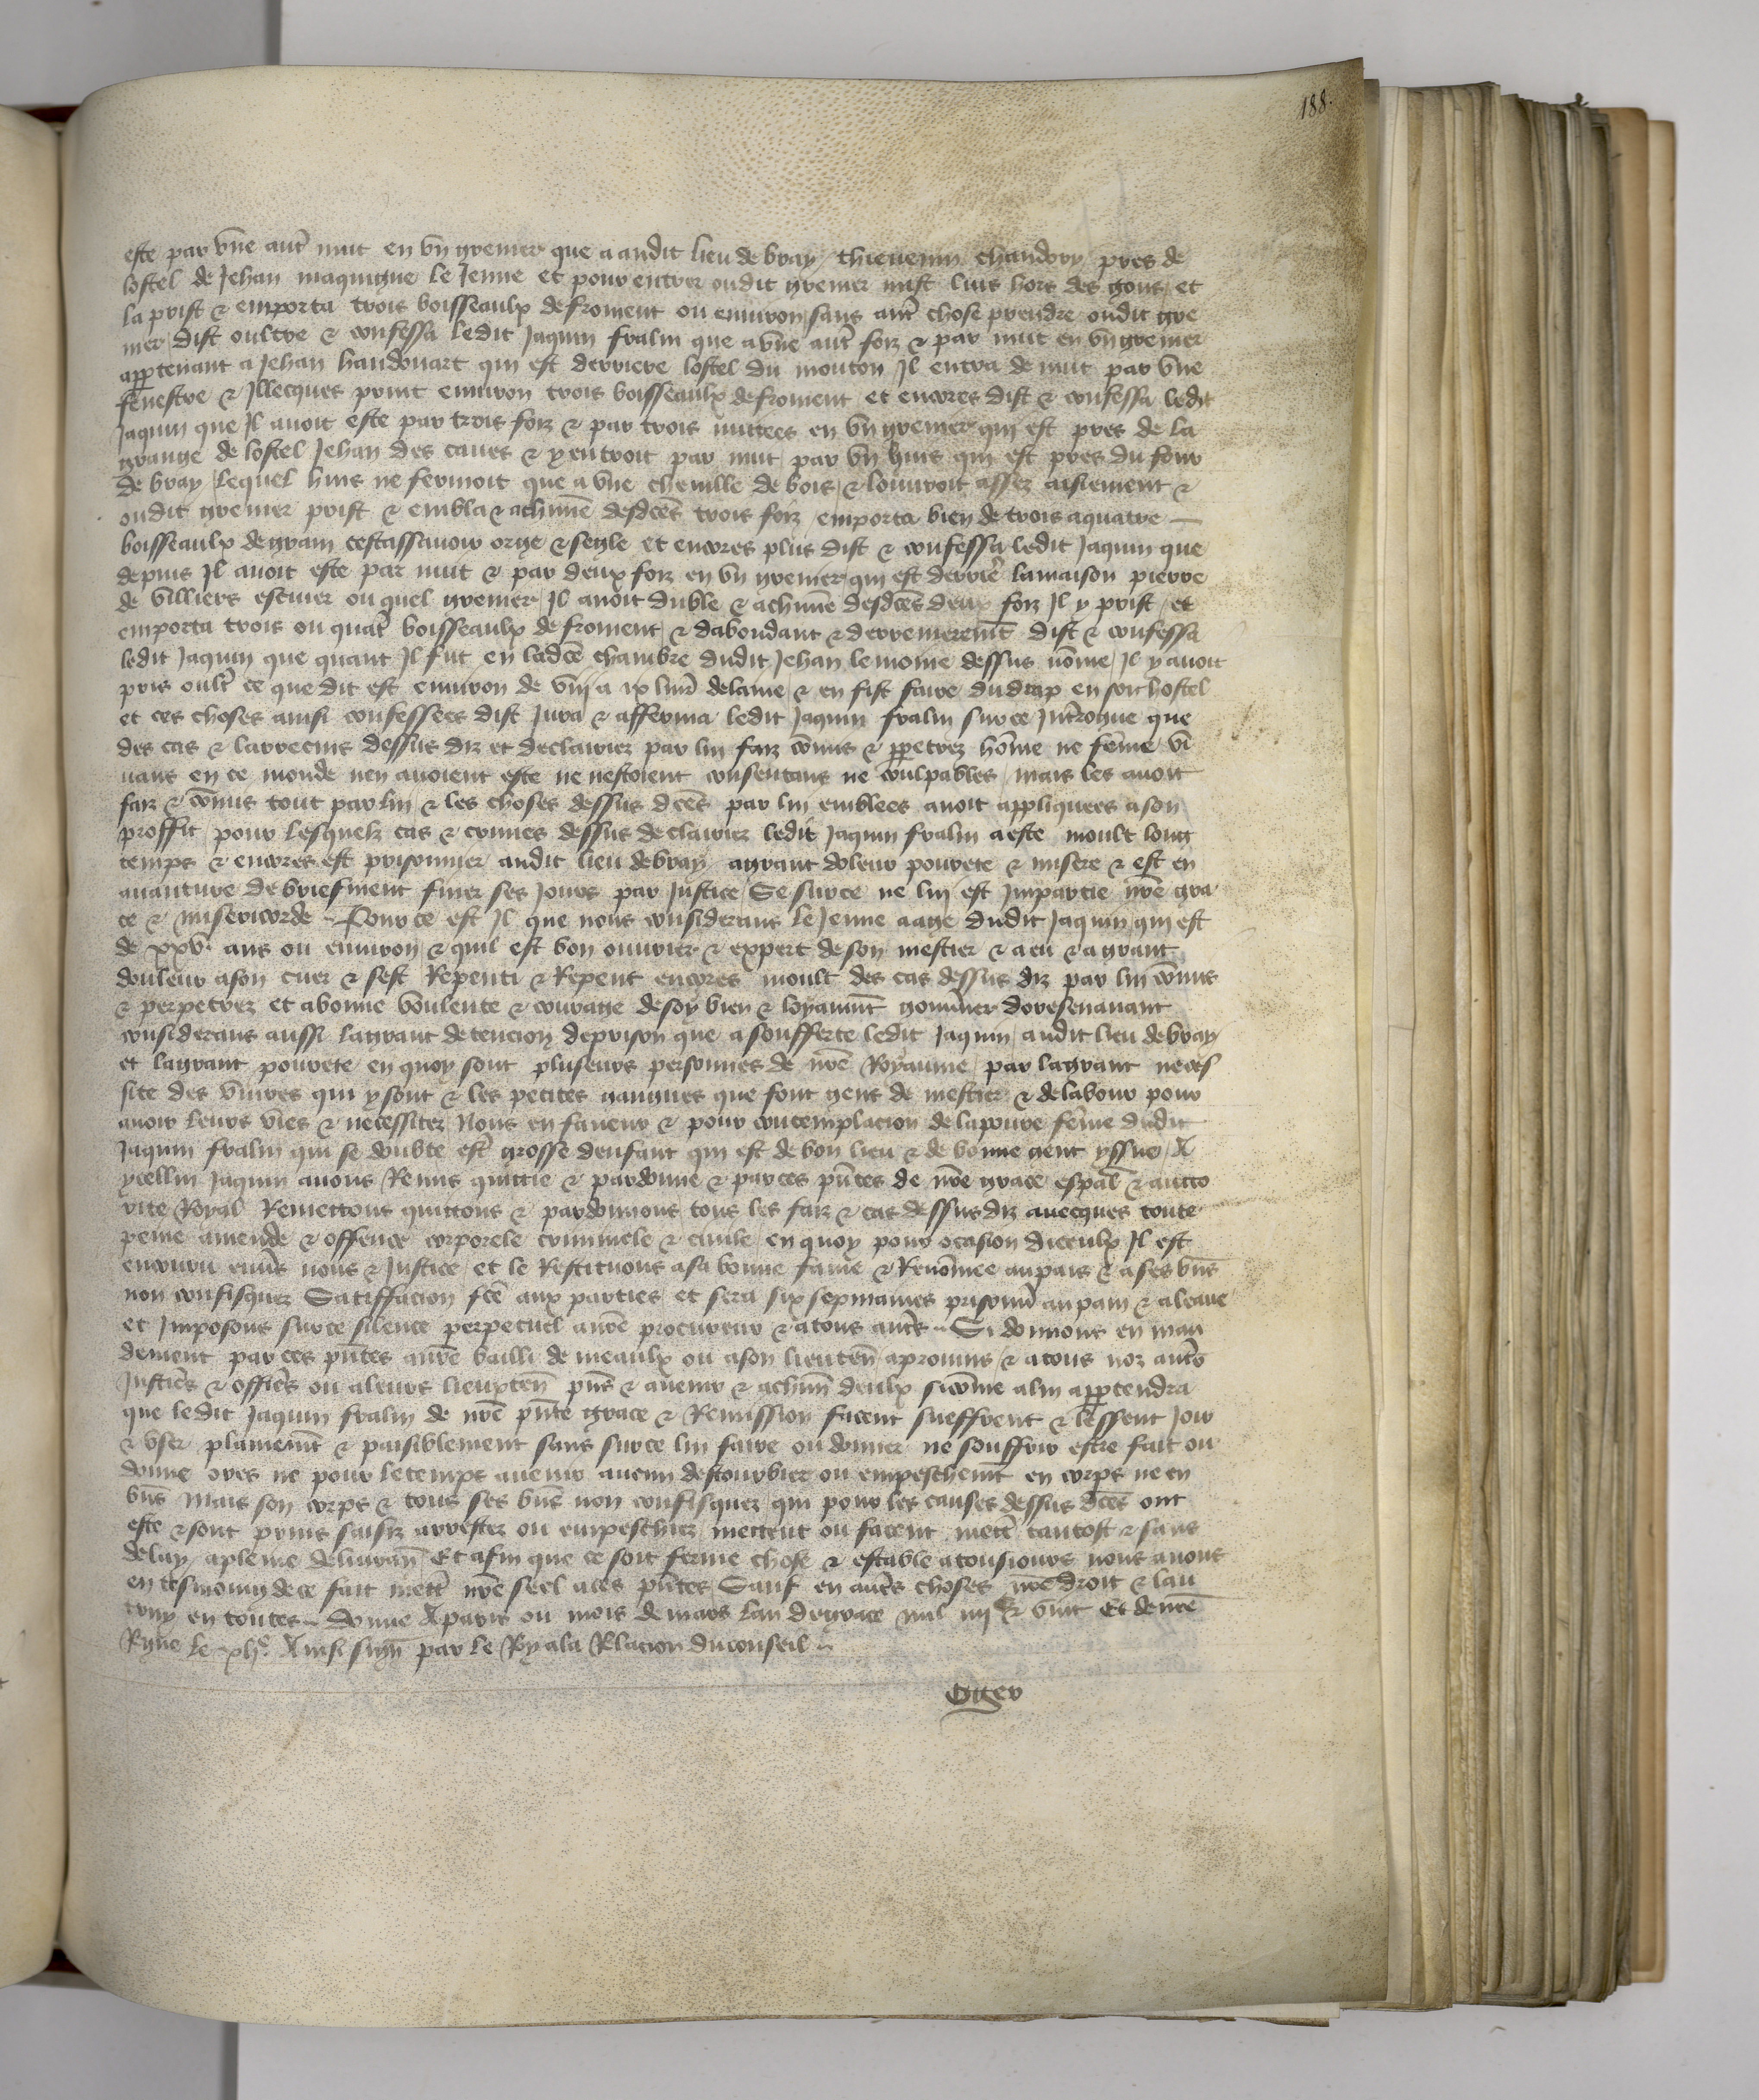 188.
este par vne aut̄ nuit en vn grenier que a audit lieu de bray thieuenin chaudery pres de
lostel de Jehan maquigne le Jenne et pour entrer oudit grenier mist luis hors des gons et
la prist & emporta trois boisseaulx de froment ou enuiron sans aut̄ chose prendre oudit gre
nier dist oultre & confessa ledit Jaquin fralin que a vne aut̄ foiz & par nuit en vn grenier
app̱tenant a Jehan haudouart qui est derriere lostel du mouton Il entra de nuit par vne
fenestre & Illecques print enuiron trois boisseaulx de froment et encores dist & confessa ledit
Jaquin que Il auoit este par trois foiz & par trois nuitees en vn grenier qui est pres de la
grange de lostel Jehan des caues & y entroit par nuit par vn huis qui est pres du four
de bray lequel huis ne fermoit que a vne cheuille de bois & louuroit assez aisiement &
oudit grenier prist & embla & achūne desdc̄es trois foiz emporta bien de trois a quatre
boisseaulx de grain cestassauoir orge & segle et encores plus dist & confessa ledit Jaquin que
depuis Il auoit este par nuit & par deux foiz en vn grenier qui est derrier̄ la maison pierre
de villiers escuier ou quel grenier Il auoit du ble & achūne desdc̄es deux foiz Il y prist et
emporta trois ou quat̄ boisseaulx de froment & dabondant & derrenierem̄t dist & confessa
ledit Jaquin que quant Il fut en ladc̄e chambre dudit Jehan lemoine dessus nōme Il y auoit
pris oult̄ ce que dit est enuiron de viij a ix liur̄ de laine & en fist faire du drap en son hostel
et ces choses ainsi confessees dist Jura & afferma ledit Jaquin fralin sur ce Int̄rogue que
des cas & larrecins dessus diz et declairiez par lui faiz cōmis & pp̱etrez hōme ne fēme vi
uans en ce monde nen auoient este ne nestoient consentans ne coulpables mais les auoit
faiz & cōmis tout par lui & les choses dessus dc̄es par lui emblees auoit appliquees a son
proffit pour lesquelz cas & crimes dessus declairiez ledit Jaquin fralin a este moult long
temps & encores est prisonnier audit lieu de bray a grant doleur pourete & misere & est en
auanture de briefment finer ses Jours par Justice Se sur ce ne lui est Impartie nr̄e gra
ce & misericorde Pour ce est Il que nous considerans le Jenne aage dudit Jaquin qui est
de xxv ans ou enuiron & quil est bon ouurier & expert de son mestier & a eu & a grant
douleur a son cuer & sest Repenti & Repent encores moult des cas dessus diz par lui cōmis
& perpetrez et a bonne voulente & courage de soy bien & loyaum̄t gouuner doresenauant
considerans aussi la grant detencion de prison que a soufferte ledit Jaquin audit lieu de bray
et la grant pourete en quoy sont pluseurs personnes de nr̄e Royaume par la grant neces
site des viures qui y sont & les petites gaignes que font gens de mestier & de labour pour
auoir leurs vies & necessitez Nous en faueur & pour contemplacion de la poure fēme dudit
Jaquin fralin qui se doubte est̄ grosse denfant qui est de bon lieu & de bonne gent yssue A
ycellui Jaquin auons Remis quittie & pardonne & par ces pn̄tes de nr̄e grace esp̄al & aucto
rite Royal Remettons quittons & pardonnons tous les faiz & cas dessus diz auecques toute
peine amende & offence corporele criminele & ciuile en quoy pour ocasion diceulx Il est
encouru enūs nous & Justice et le Restituons a sa bonne fame & Renōmee au pais & a ses bn̄s
non confisquez Satiffacion fc̄e aux parties et sera six sepmaines prisonn̄ au pain & a leaue
et Imposons sur ce silence perpetuel a nr̄e procureur & a tous aut̄s Si donnons en man
dement par ces pn̄tes a nr̄e bailli de meaulx ou a son lieuten̄ a prouins & a tous noz aut̄s
Justic̄s & offic̄s ou a leurs lieuxten̄ pn̄s & auenir & a chūn deulx si cōme a lui app̱tendra
que ledit Jaquin fralin de nr̄e pn̄te grace & Remission facent sueffrent & lessent Joir
& vser plainem̄t & paisiblement sans sur ce lui faire ou donner ne souffrir estre fait ou
donne ores ne pour le temps auenir aucun destourbier ou empeschem̄t en corps ne en
bn̄s Mais son corps & tous ses bn̄s non confisquez qui pour les causes dessus dc̄es ont
este & sont prins saisiz arrestez ou empeschiez mettent ou facent mett̄ tantost & sans
delay a pleine deliuran̄ Et afin que ce soit ferme chose & estable a tousiours nous auons
en tesmoing de ce fait mett̄ nr̄e seel a ces pn̄tes Sauf en aut̄s choses nr̄e droit & lau
truy en toutes Donne A paris ou mois de mars lan de grace mil iiij c & vint Et de nr̄e
Regne le xlj.e Ainsi sign̄ par le Roy a la Relacion du conseil
Oger